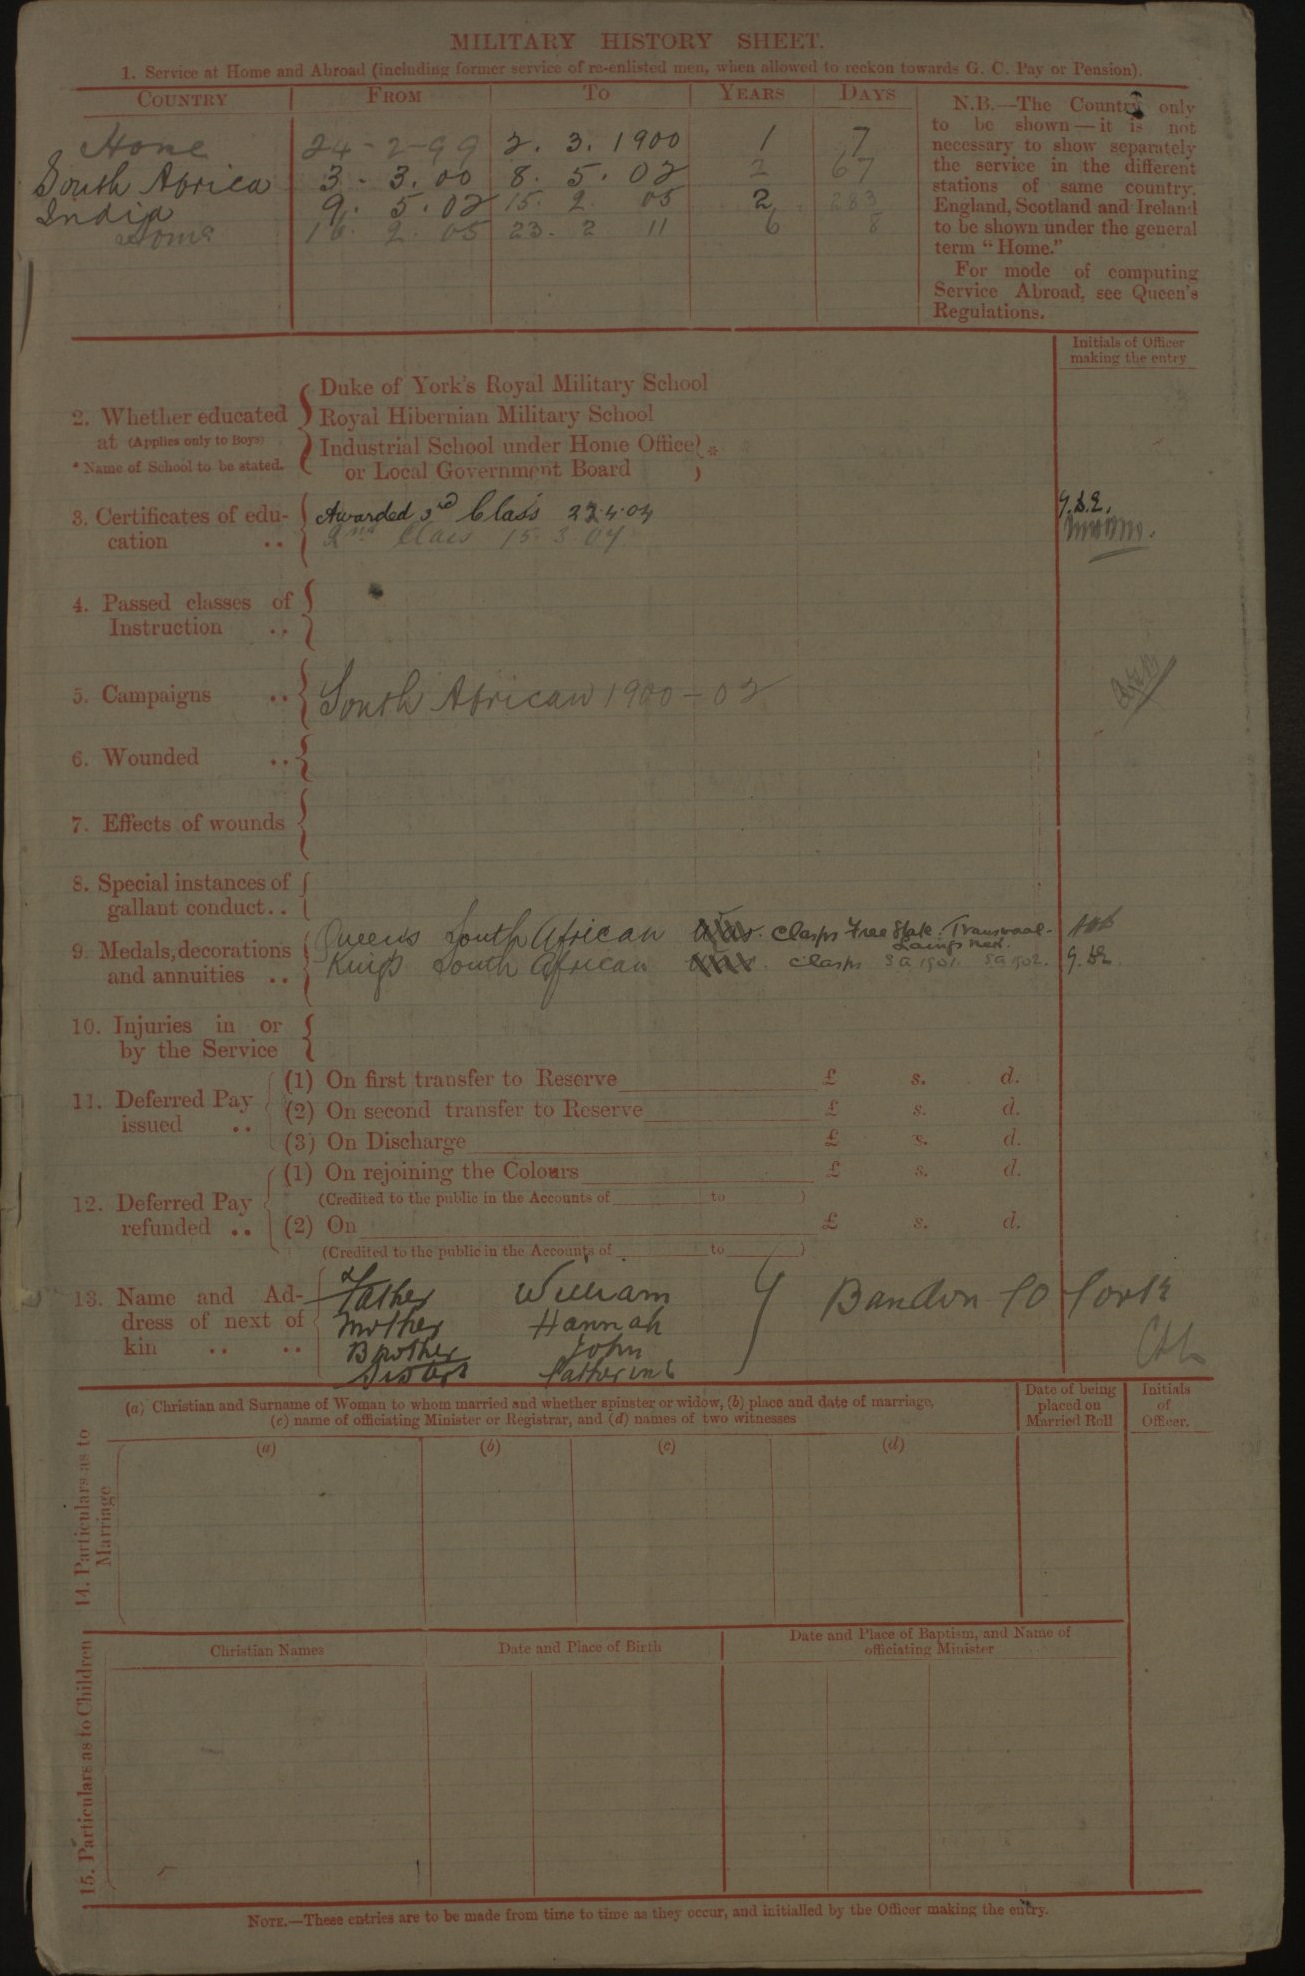 MILITARY HISTORY SHEET.
1. Service at Home and Abroad (including former service of re-enlisted men, when allowed to reckon towards G. C. Pay or Pension).
COUNTRY FROM TO YEARS DAYS
Home 24-2-99 2. 3. 1900 1 7
South Africa 3. 3. 00 8. 5. 02 2 67
India 9. 5. 02 15. 2. 05 2 283
Home 16. 2. 05 23. 2 11 6 8
N.B.—The Country only
to be shown—it is not
necessary to show separately
the service in the different
stations of same country.
England, Scotland and Ireland
to be shown under the general
term "Home."
For mode of computing
Service Abroad, see Queen's
Regulations.
Initials of Officer
making the entry
2. Whether educated
at (Applies only to Boys)
* Name of School to be stated.
Duke of York's Royal Military School
Royal Hibernian Military School
Industrial School under Home Office *
or Local Government Board
3. Certificates of edu-
cation ..
Awarded 3rd Class 22.4.04
2nd Class 15.3.07
4. Passed classes of
Instruction ..
5. Campaigns .. South African 1900-02
6. Wounded ..
7. Effects of wounds
8. Special instances of
gallant conduct..
9. Medals, decorations
and annuities ..
Queen's South African War. Clasps Free State. Transvaal.
Laings Nek.
King's South African clasps SA 1901. SA 1902.
10. Injuries in or
by the Service
11. Deferred Pay
issued ..
(1) On first transfer to Reserve £ s. d.
(2) On second transfer to Reserve £ s. d.
(3) On Discharge £ s. d.
12. Deferred Pay
refunded ..
(1) On rejoining the Colours £ s. d.
(Credited to the public in the Accounts of to )
(2) On £ s. d.
(Credited to the public in the Accounts of to )
13. Name and Ad-
dress of next of
kin .. ..
Father William
Mother Hannah
Brother John
Sisters Catherine
Bandon Co Cork
14. Particulars as to
Marriage
(a) Christian and Surname of Woman to whom married and whether spinster or widow, (b) place and date of marriage,
(c) name of officiating Minister or Registrar, and (d) names of two witnesses
Date of being
placed on
Married Roll
Initials
of
Officer.
(a) (b) (c) (d)
15. Particulars as to Children
Christian Names Date and Place of Birth
Date and Place of Baptism, and Name of
officiating Minister
NOTE.—These entries are to be made from time to time as they occur, and initialled by the Officer making the entry.